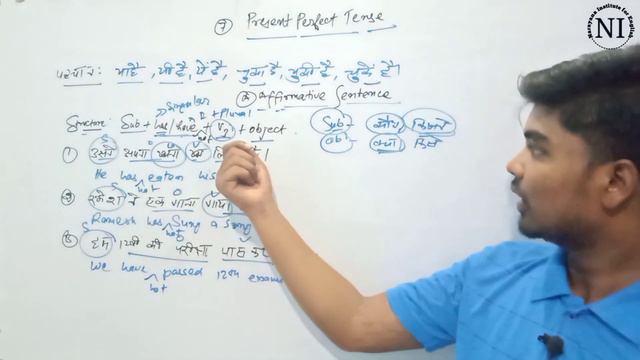 ⑦ Present Perfect Tense
पहचान: या है, यी है, ये हैं, चुका है, चुकी है, चुके हैं।
Ⓐ Affirmative Sentence
Singular
I + Plural
Structure: Sub + has/have + V3 + object.
not
Sub - कौन, किसने
Obj - क्या, किसे
① उसने अपना खाना खा
He has eaten
not
② रमेश ने एक गाना गाया
Ramesh has Sung a Song
not
③ हम 12वीं की परीक्षा पास कर
We have passed 12th exam
not
Narayana Institute for English
NI